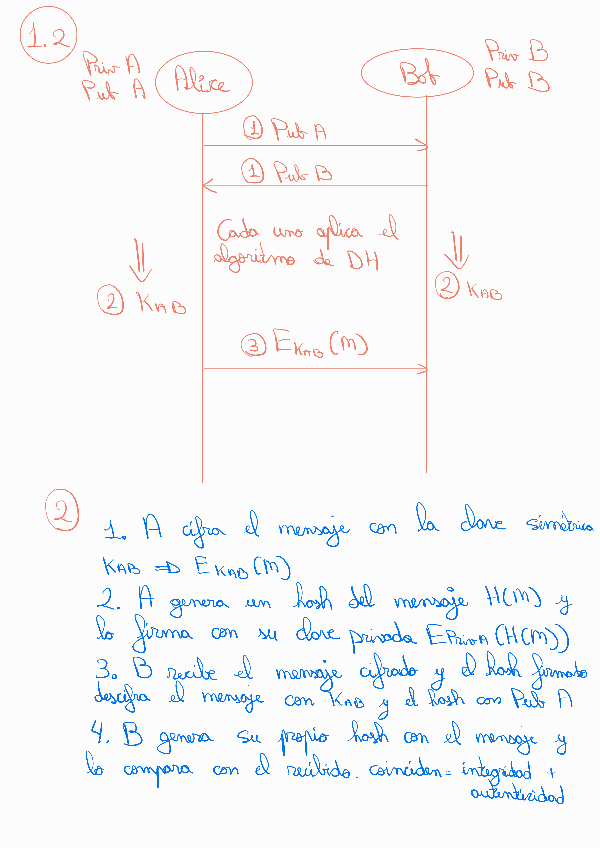 1.2
Priv A
Pub A
Alice
Bob
Priv B
Pub B
① Pub A
① Pub B
Cada uno aplica el
algoritmo de DH
② KAB
② KAB
③ EKAB (M)
②
1. A cifra el mensaje con la clave simétrica
KAB => EKAB (M)
2. A genera un hash del mensaje H(M) y
lo firma con su clave privada EPrivA (H(M))
3. B recibe el mensaje cifrado y el hash firmado
descifra el mensaje con KAB y el hash con Pub A
4. B genera su propio hash con el mensaje y
lo compara con el recibido. coinciden = integridad +
autenticidad